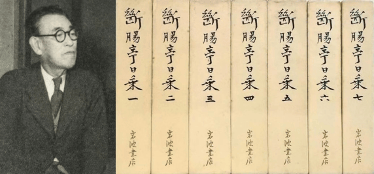 斷腸亭日乘 一
岩波書店
斷腸亭日乘 二
岩波書店
斷腸亭日乘 三
岩波書店
斷腸亭日乘 四
岩波書店
斷腸亭日乘 五
岩波書店
斷腸亭日乘 六
岩波書店
斷腸亭日乘 七
岩波書店